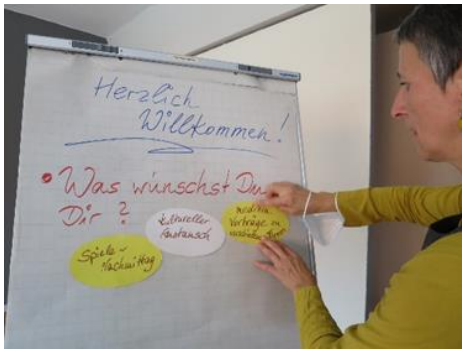 Herzlich
Willkommen!
• Was wünschst Du
Dir?
Spiele-
Nachmittag
kultureller
Austausch
Vorträge zu